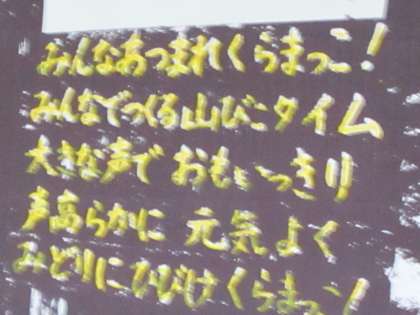 みんなあつまれくらまっこ!
みんなでつくる山びこタイム
大きな声で おもいっきり
声高らかに 元気よく
みどりにひびけくらまっこ!